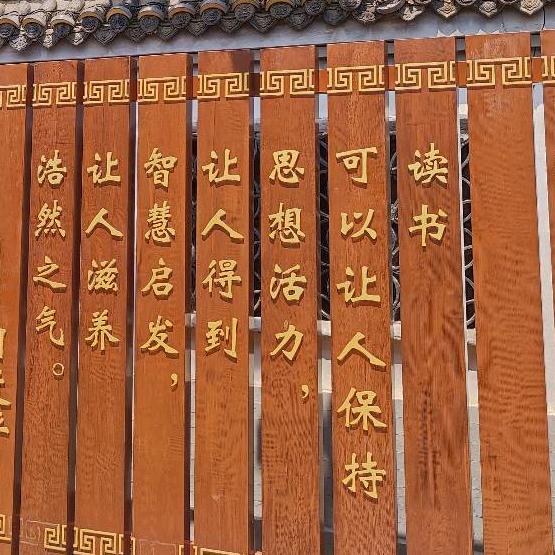 读书
可以让人保持
思想活力，
让人得到
智慧启发，
让人滋养
浩然之气。